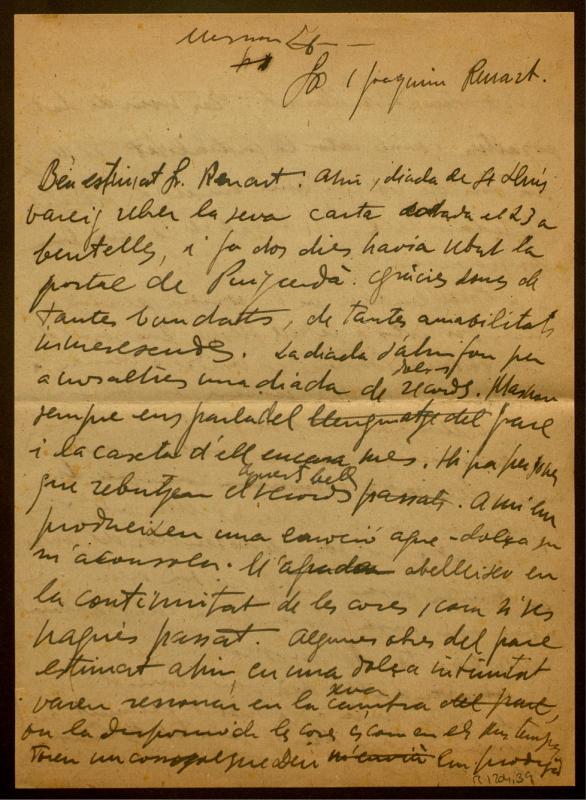 Sr Joaquim Renart.
Bén estimat Sr. Renart: ahir, diada de St Lluís
vareig rebre la seva carta datada el 23 a
bentelles, i fa dos dies havia rebut la
postal de Puigcerdà. Gràcies dones de
tantes bondats, de tantes amabilitats
inmerescudes. La diada d'ahir fou per
a nosaltres una diada de dolços records. Masnou
sempre ens parla del llenguatge del pare
i la caseta d'ell encara mes. Hi ha persones
que rebutjen aquests bells records passats. A mi em
produeixen una emoció agre-dolça que
m'aconsola. M'agrada abelleixo en
la continuitat de les coses, com si res
hagués passat. Algunes obres del pare
estimat ahir en una dolça intimitat
varen ressonar en la seva cambra del pare,
on la disposició de les coses és com en els seus temps